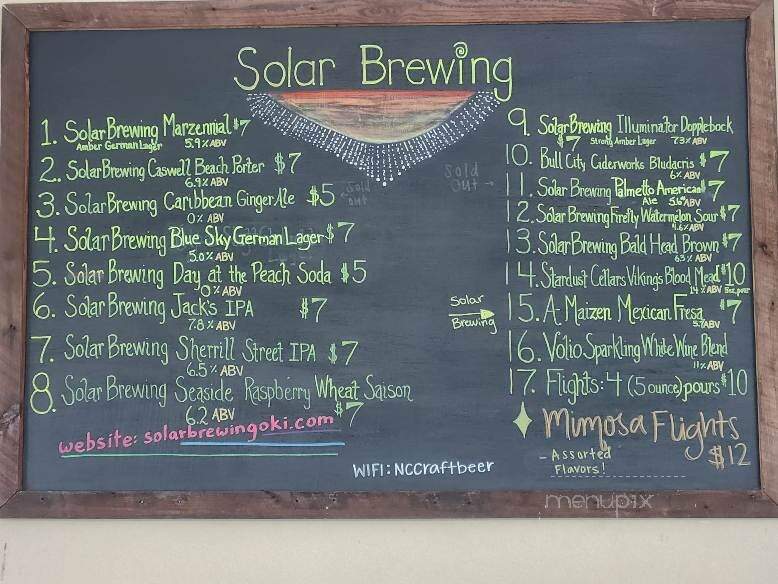 Solar Brewing
1. Solar Brewing Marzennial $7
Amber German Lager 5.9% ABV
2. Solar Brewing Caswell Beach Porter $7
6.9% ABV
3. Solar Brewing Caribbean Ginger Ale $5
0% ABV
4. Solar Brewing Blue Sky German Lager $7
5.0% ABV
5. Solar Brewing Day at the Peach Soda $5
0% ABV
6. Solar Brewing Jack's IPA $7
7.8% ABV
7. Solar Brewing Sherrill Street IPA $7
6.5% ABV
8. Solar Brewing Seaside Raspberry Wheat Saison
6.2 ABV $7
website: solarbrewingoki.com
WIFI: NCCraftbeer
Sold
out
Sold
out
Solar
Brewing
9. Solar Brewing Illuminator Dopplebock
$7 Strong Amber Lager 7.3% ABV
10. Bull City Ciderworks Bludacris $7
6% ABV
11. Solar Brewing Palmetto American $7
Ale 5.6% ABV
12. Solar Brewing Firefly Watermelon Sour $7
4.6% ABV
13. Solar Brewing Bald Head Brown $7
6.3% ABV
14. Stardust Cellars Viking's Blood Mead $10
14% ABV 5oz pour
15. A-Maizen Mexican Fresa $7
5.7 ABV
16. Volio Sparkling White Wine Blend
11% ABV
17. Flights: 4 (5 ounce) pours $10
Mimosa Flights
$12
- Assorted
Flavors!
menupix